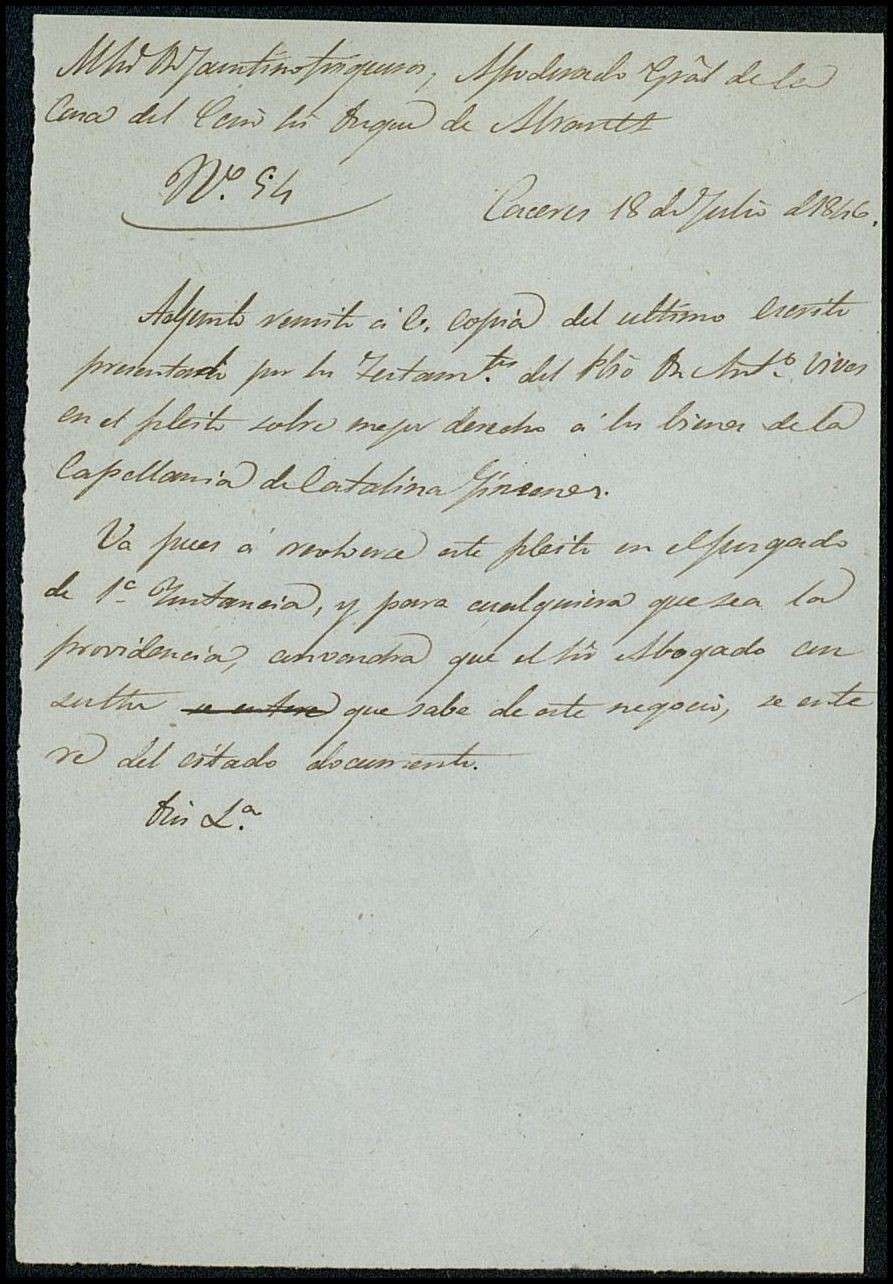 Apoderado Gral de la
Casa del Exmo Sr Duque de Abrantes
Nº. 54
Caceres 18 de Julio d 1846.
Adjunto remito á V. copia del ultimo escrito
presentado por los Testam.tos del Pbro Dn Ant.º Vivas
en el pleito sobre mejor derecho á los bienes de la
Capellania de Catalina Jimenez.
Va pues á resolverse este pleito en el Juzgado
de 1ª Instancia, y para cualquiera que sea la
providencia, convendra que el Sr Abogado con
sultor que sabe de este negocio, se ente
re del citado documento.
Dios Lª.